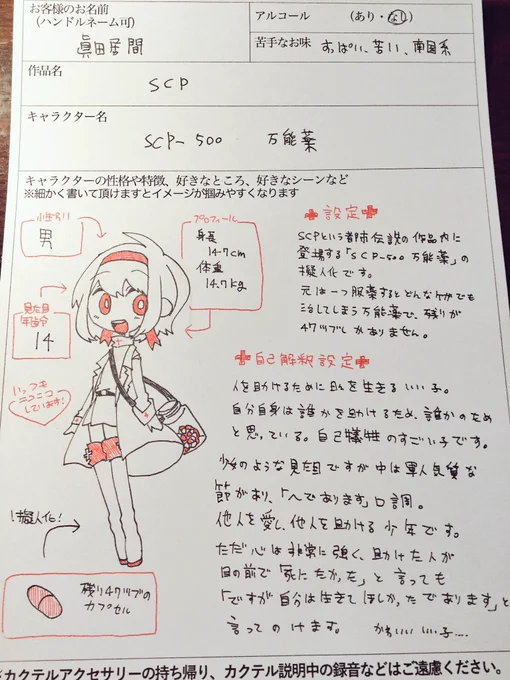 お客様のお名前
(ハンドルネーム可)
眞田産間
アルコール (あり・なし)
苦手なお味 すっぱい、苦い、南国系
作品名
SCP
キャラクター名
SCP-500 万能薬
キャラクターの性格や特徴、好きなところ、好きなシーンなど
※細かく書いて頂けますとイメージが掴みやすくなります
性別
男
見た目
年齢
14
いつも
ニコニコ
しています!
プロフィール
身長
147cm
体重
14.7kg
設定
SCPという都市伝説の作品内に
登場する「SCP-500 万能薬」の
擬人化です。
元は一つ服薬するとどんなケガでも
治してしまう万能薬で、残りが
47ツブしかありません。
自己解釈設定
人を助けるために日々を生きるいい子。
自分自身は誰かを助けるため、誰かのため
と思っている。自己犠牲のすごい子です。
少女のような見た目ですが中は軍人気質な
節があり、「〜であります」口調。
他人を愛し、他人を助ける少年です。
ただ心は非常に強く、助けた人が
目の前で「死にたかった」と言っても
「ですが自分は生きてほしかったであります」と
言ってのけます。 かわいいいい子…
!擬人化!
残り47ツブの
カプセル
※カクテルアクセサリーの持ち帰り、カクテル説明中の録音などはご遠慮ください。